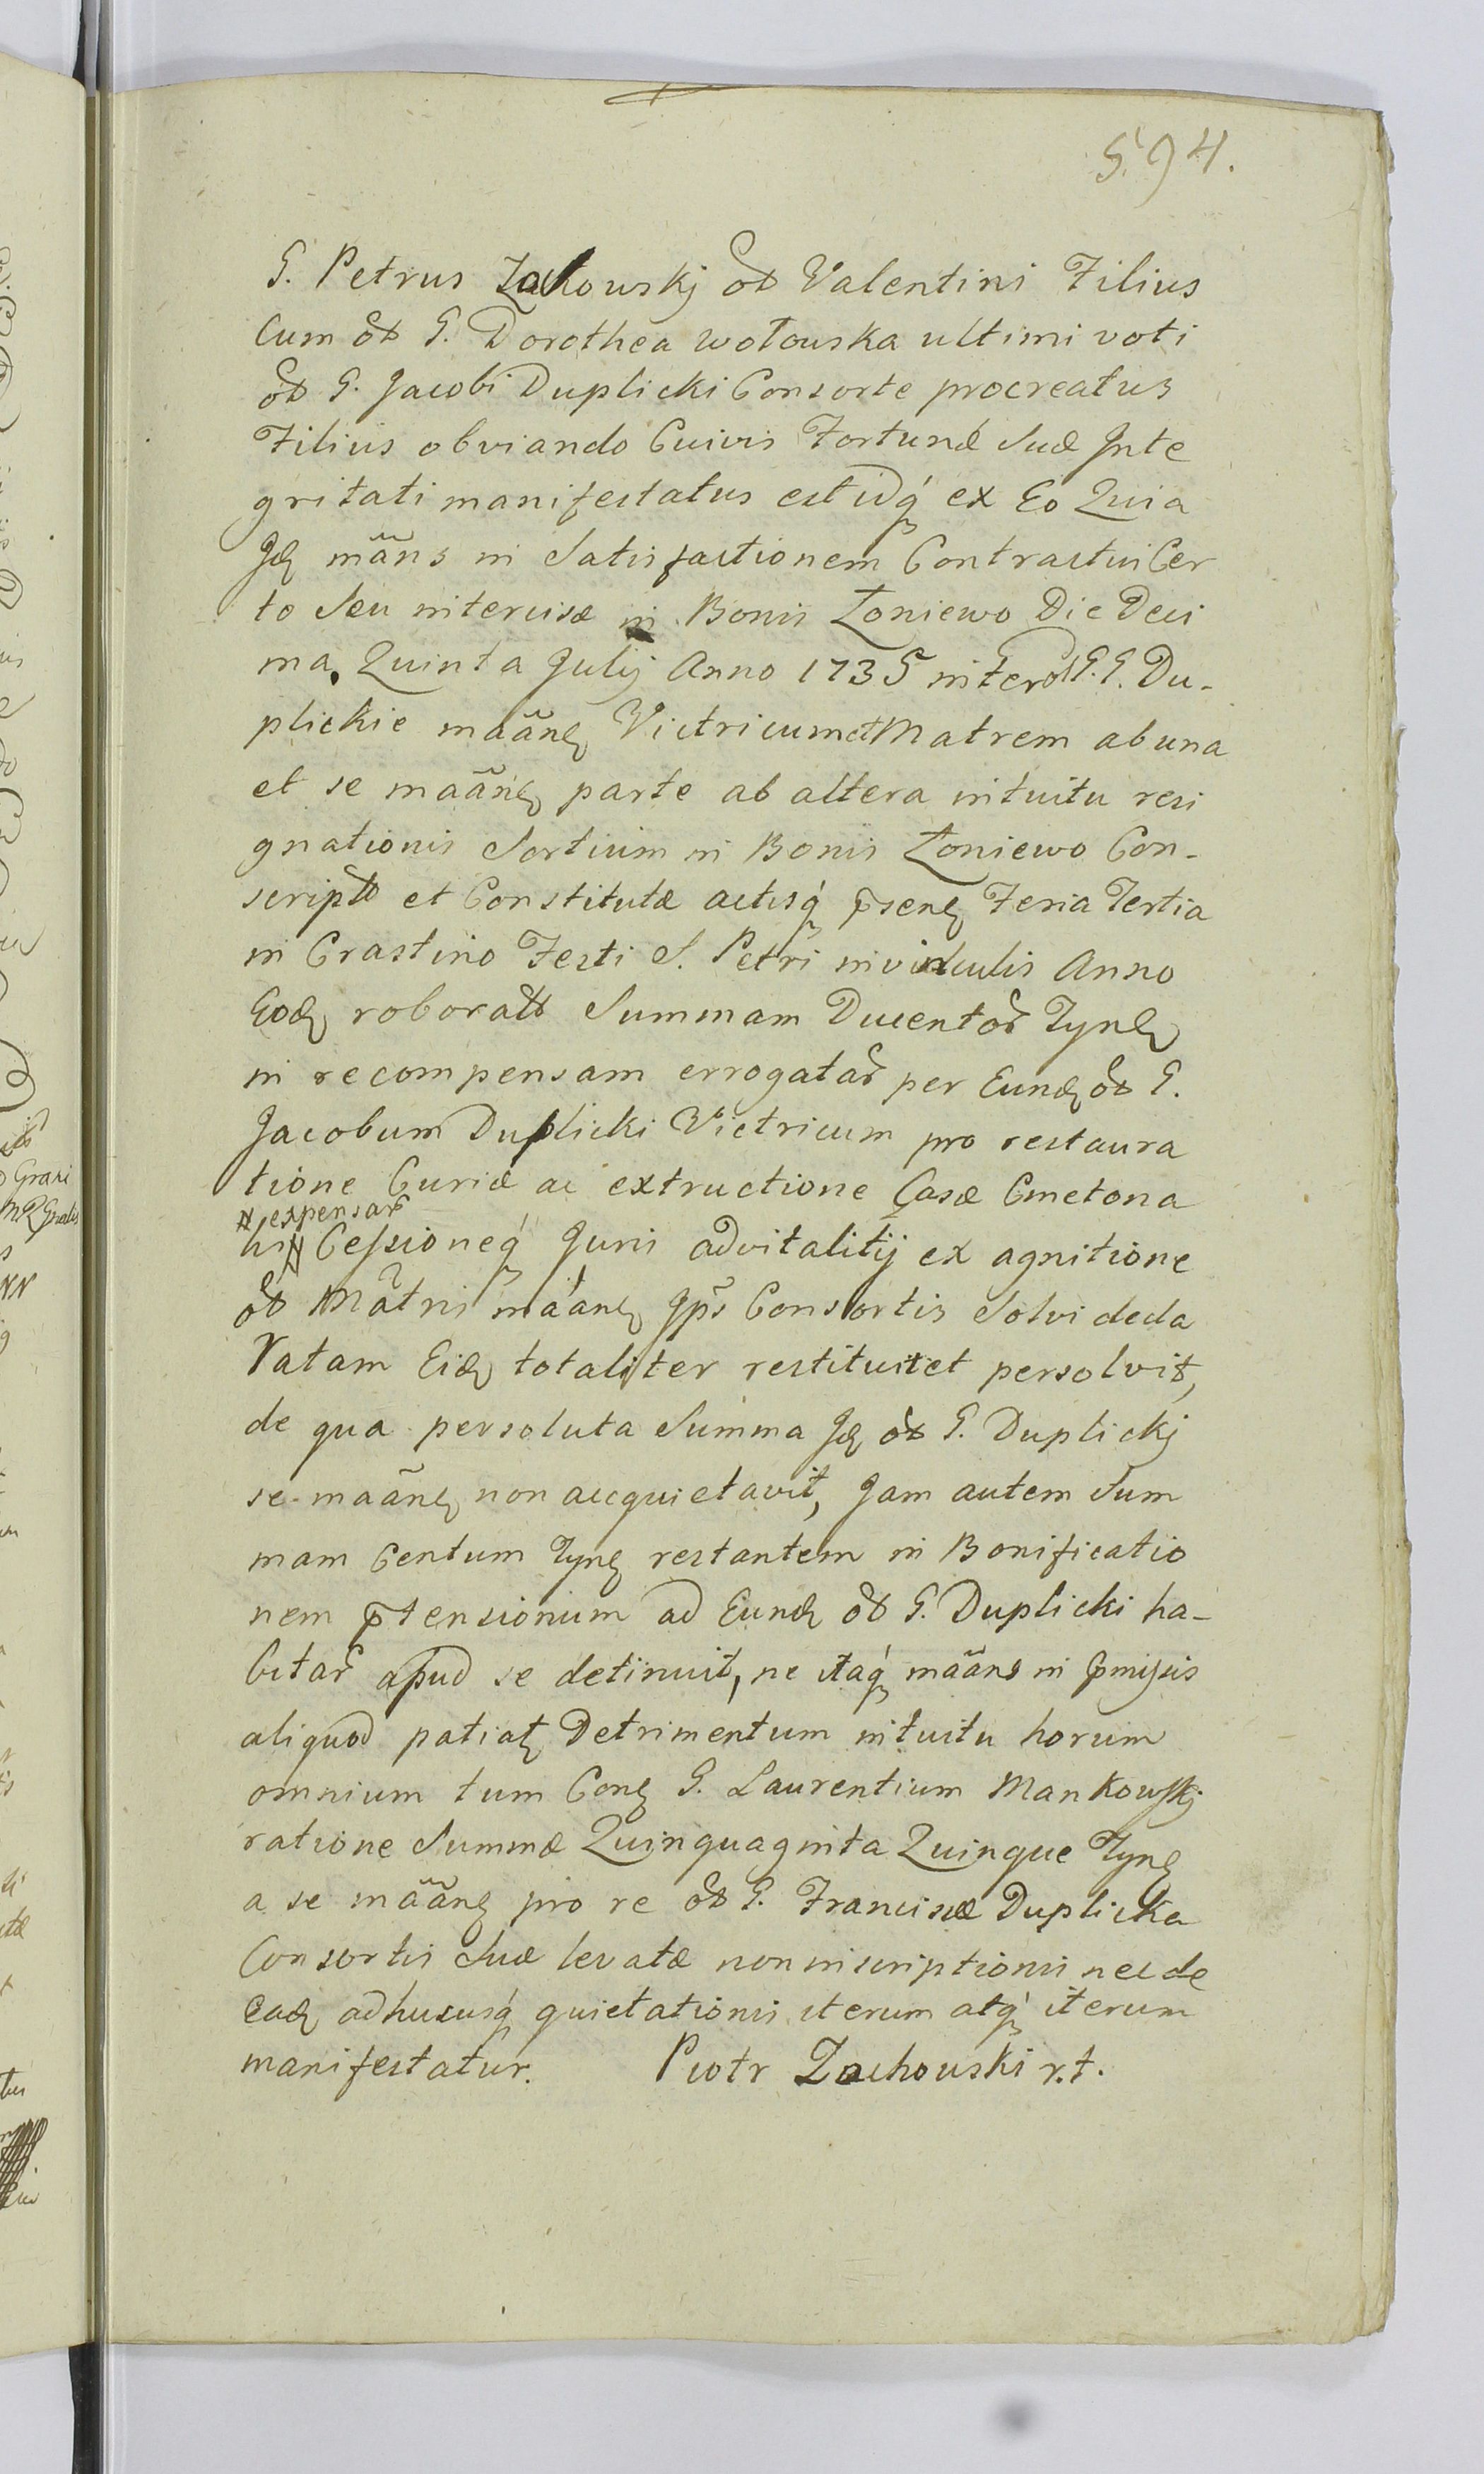 594.
G. Petrus Zackowskj od Valentini Filius
Cum od G. Dorothea wołowska ultimi voti
od G. Jacobi Duplicki Consorte procreatus
Filius obviando Cuivis Fortunæ Suæ Inte
gritati manifestatus est idq́ ex Eo Quia
Idę mãns in Satisfactionem Contractui Cer
to Seu intercisæ in Bonis Łoniewo Die Deci
ma, Quinta Julij Anno 1735 inter od G. G. Du-
plickie maãnę Victricum et Matrem ab una
et se maãnę parte ab altera intuitu resi
gnationis Sortium in Bonis Łoniewo Con-
script et Constitutæ actisq́ p̃senę Feria Tertia
in Crastino Festi S. Petri in vinculis Anno
Eodę roborat Summam Ducentor Tynę
in recompensam errogatar per Eundę od G.
Jacobum Duplicki Victricum pro restaura
tione Curiæ ac extructione Casæ Cmetona
# expensar
lis # Cessioneq́ Juris advitalitij ex agnitione
od Mãtris máanę Ip̃s Consortis Solvi deda
ratam Eidę totaliter restituit et persolvit,
de qua persoluta Summa Idę od G. Duplickj
se maãnę non accquietavit, Jam autem Sum
mam Centum Tynę restantem in Bonificatio
nem p̃tensionum ad Eundę od G. Duplicki ha-
bitar apud se detinuit, ne itaq́ maãns in p̃missis
aliquod patiatę Detrimentum intuitu horum
omnium tum Conę G. Laurentium Mankowskj
ratione Summæ Quinquaginta Quinque Tynę
a se mããnę pro re od G. Franciscæ Duplicka
Consortis Suæ levatæ non inscriptionis nec de
Eadę adhucusq́ quietationis iterum atq́ iterum
manifestatur. Piotr Zachowski r.t.